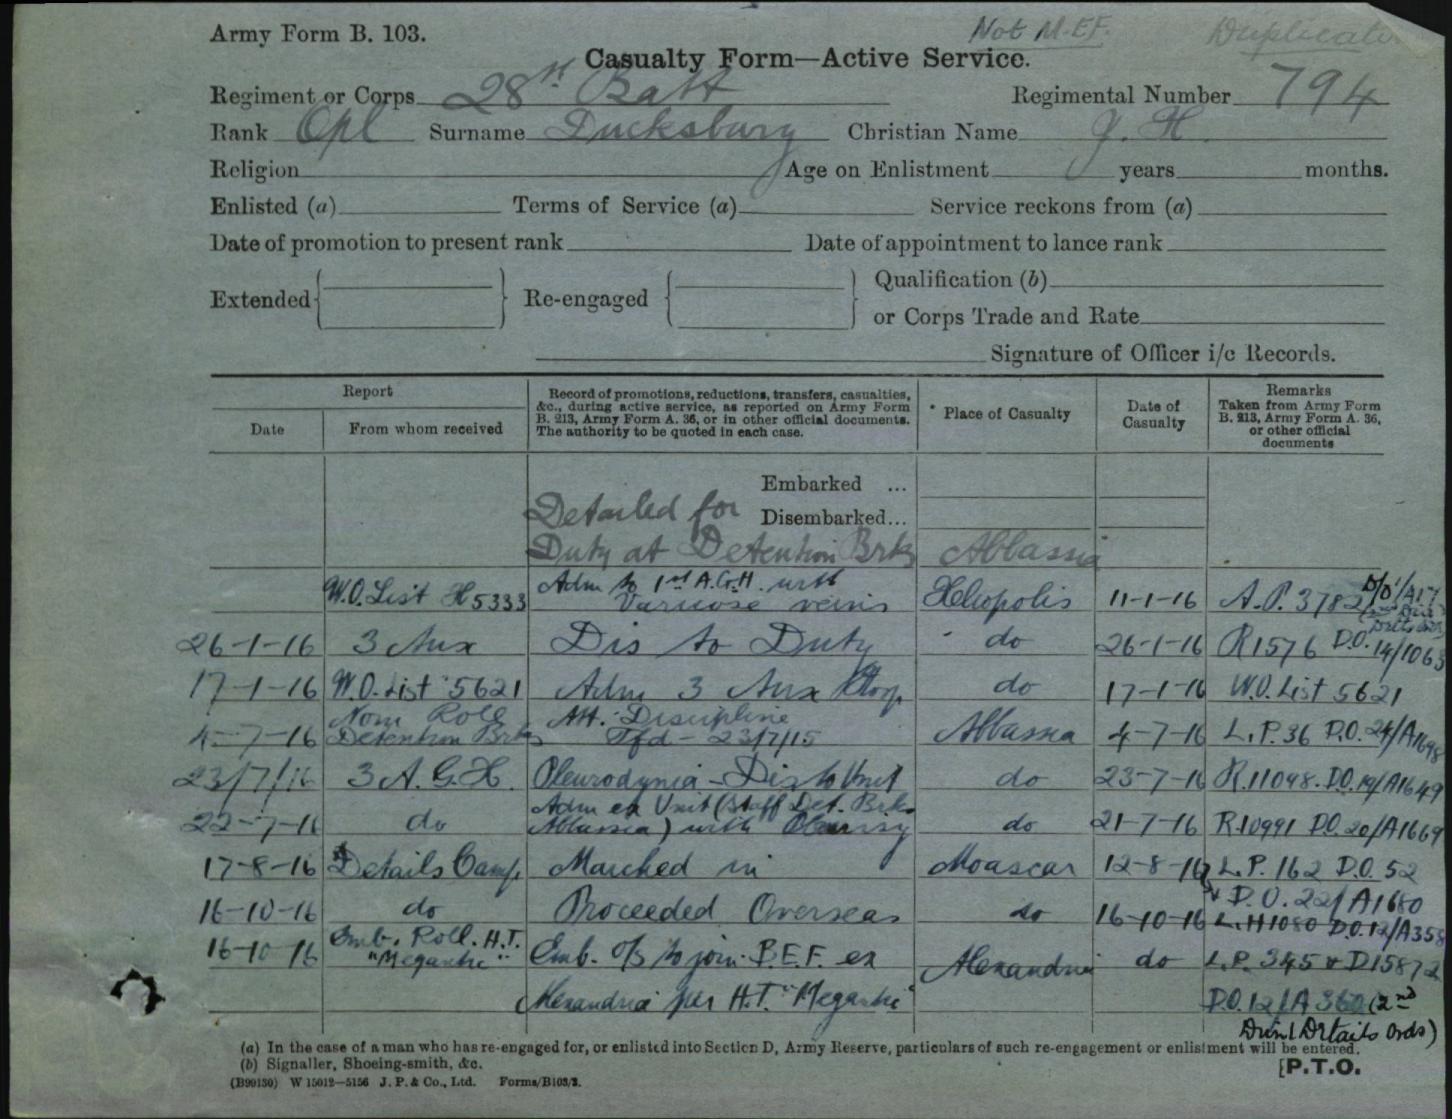 Army Form B. 103.
Not M.E.F.
Duplicate
Casualty Form—Active Service.
Regiment or Corps 28th Batt Regimental Number 794
Rank Cpl Surname Ducksbury Christian Name J. H.
Religion Age on Enlistment years months.
Enlisted (a) Terms of Service (a) Service reckons from (a)
Date of promotion to present rank Date of appointment to lance rank
Extended Re-engaged Qualification (b)
or Corps Trade and Rate
Signature of Officer i/c Records.
Report
Date
From whom received
Record of promotions, reductions, transfers, casualties,
&c., during active service, as reported on Army Form
B. 213, Army Form A. 36, or in other official documents.
The authority to be quoted in each case.
Place of Casualty
Date of
Casualty
Remarks
Taken from Army Form
B. 213, Army Form A. 36,
or other official
documents
Embarked ...
Detailed for Disembarked...
Duty at Detention Brks Abbassia
W.O. List H5333 Adm to 1st A.G.H. with
Varicose veins Heliopolis 11-1-16 A.P. 3782
26-1-16 3 Aux Dis to Duty do 26-1-16 R1576 D.O. 14/1063
17-1-16 W.O. List 5621 Adm 3 Aux Hosp do 17-1-16 W.O. List 5621
4-7-16 Nom Roll
Detention Brks Att. Discipline
Tfd - 23/7/15 Abbassia 4-7-16 L.P. 36 D.O. 24/A1698
23/7/16 3 A.G.H. Pleurodynia - Dis to Unit do 23-7-16 R.11098. D.O. 19/A1649
22-7-16 do Adm ex Unit (Staff Det. Brks
Abbassia) with Pleurisy do 21-7-16 R.10991 D.O. 20/A1669
17-8-16 Details Camp Marched in Moascar 12-8-16 L.P. 162 D.O. 52
& D.O. 22/A1680
16-10-16 do Proceeded Overseas do 16-10-16 L.H1080 D.O.12/A358
16-10-16 Emb. Roll. H.T.
"Megantic" Emb. O/S to join B.E.F. ex Alexandria do L.P. 345 & D15872
Alexandria per H.T. "Megantic" D.O. 12/A360 (2nd
Divnl Details Ords)
(a) In the case of a man who has re-engaged for, or enlisted into Section D, Army Reserve, particulars of such re-engagement or enlistment will be entered.
(b) Signaller, Shoeing-smith, &c.
(B99130) W 15012—5156 J. P. & Co., Ltd. Forms/B103/2.
[P.T.O.